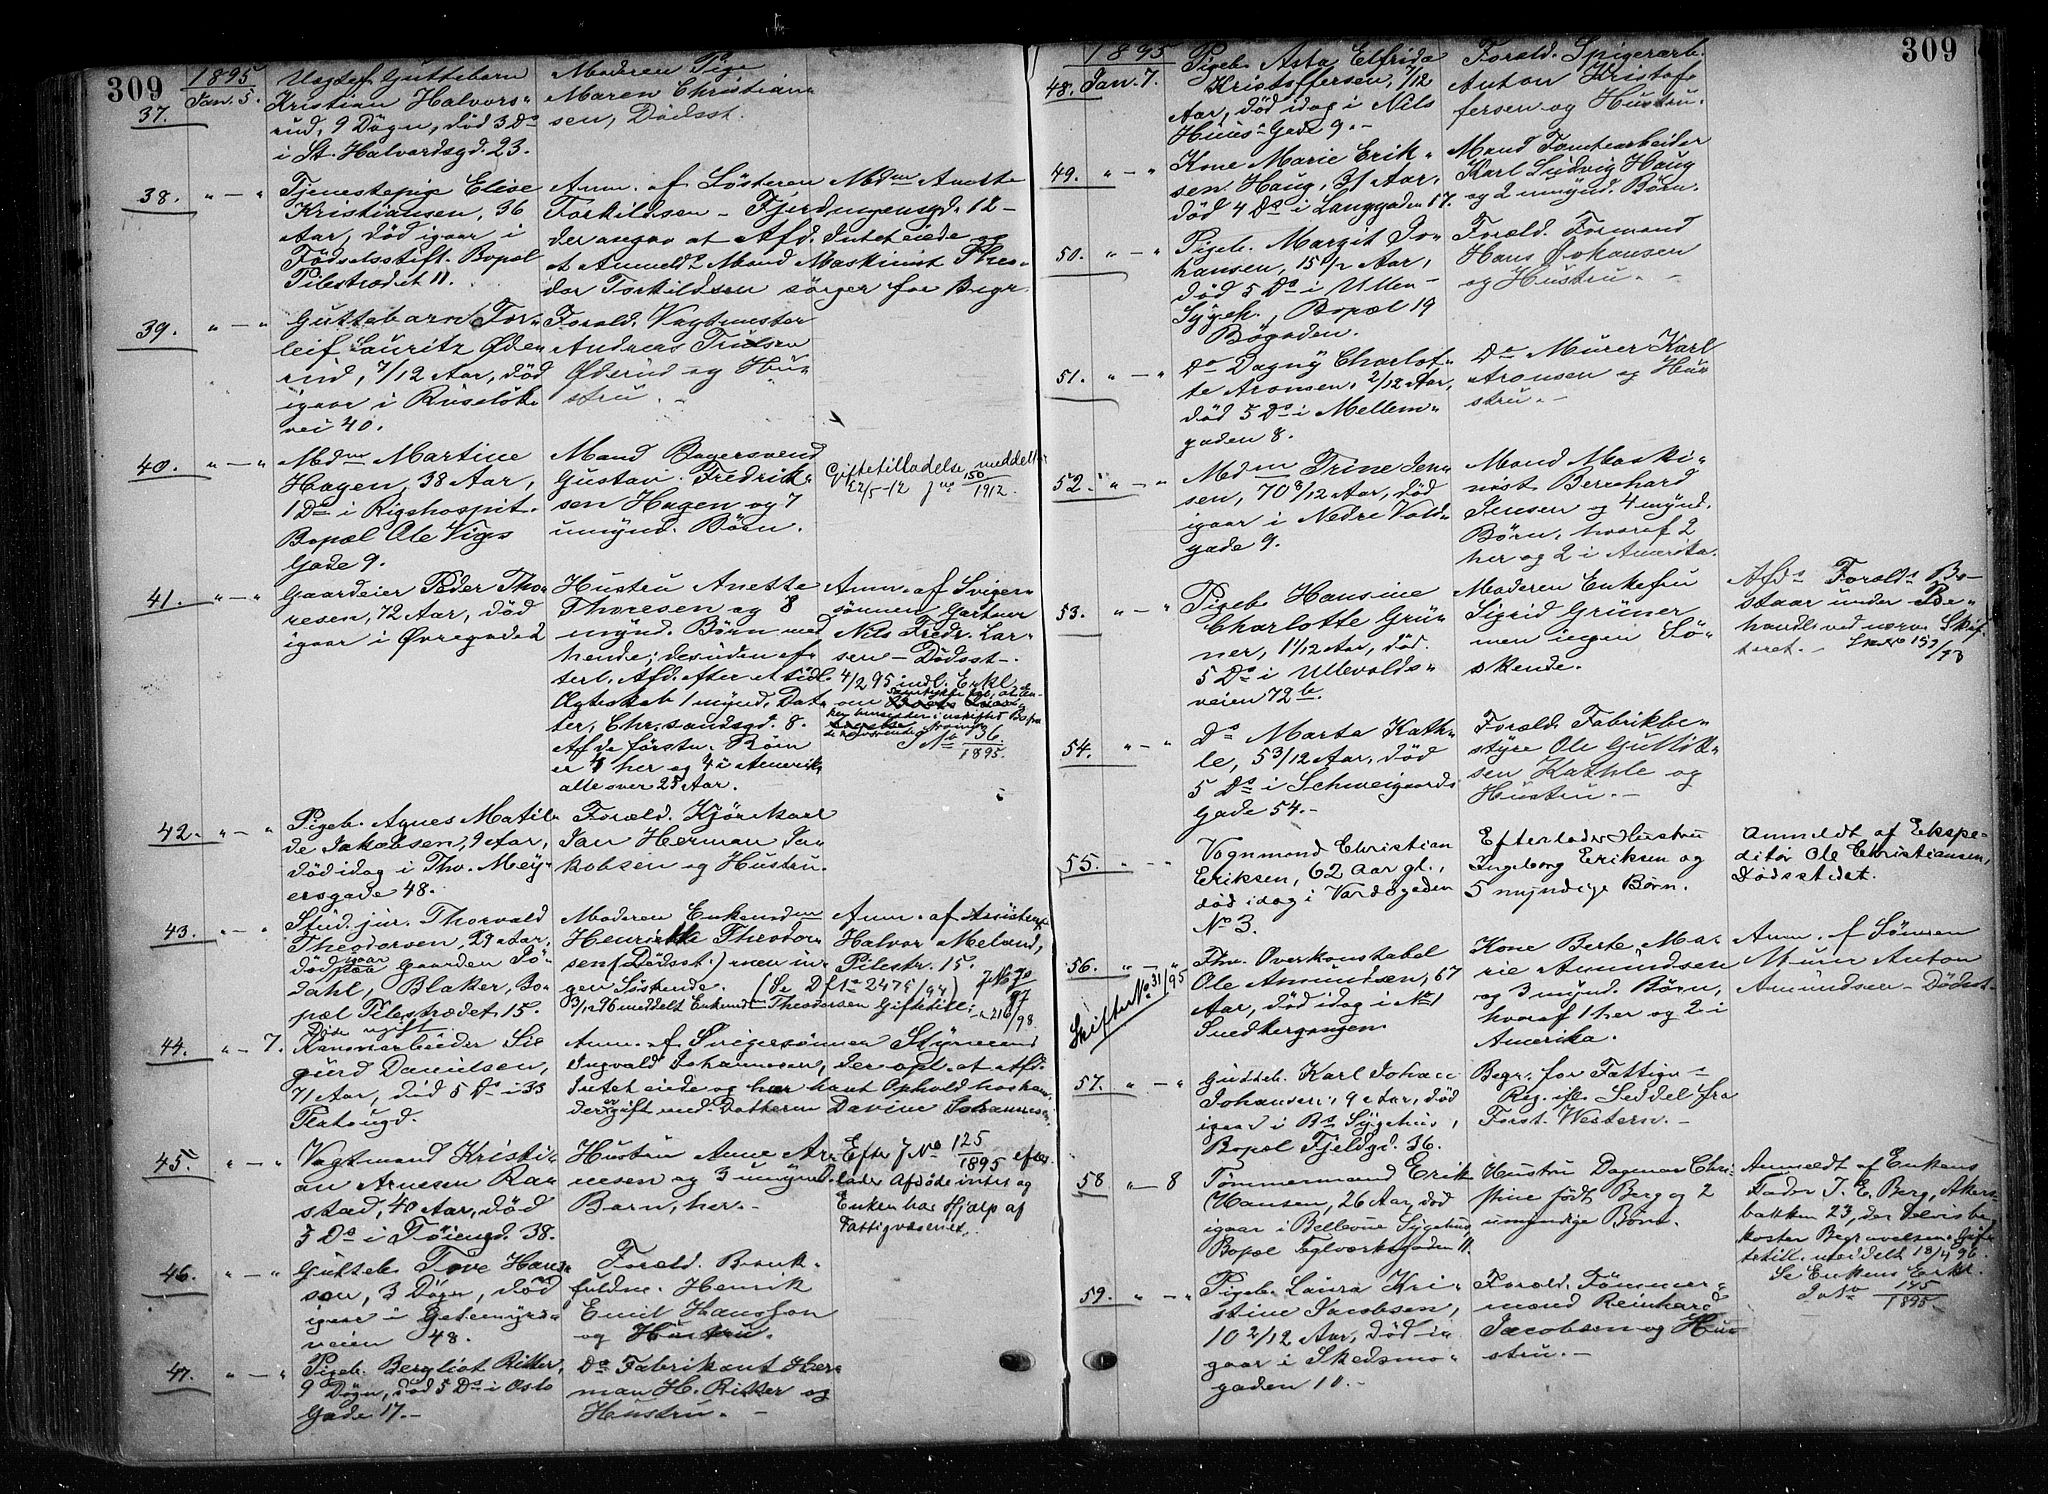 309
1895
37. Jan. 5.
Guttebarn
Kristian Halvors-
rud, 9 Døgn, død 3 Ds
i St. Halvardsgd. 23.
Moderen Pige
Maren Christian-
sen, Dødsst.
38. " — "
Tjenestepige Elise
Kristiansen, 36
Aar, død igaar i
Fødselsstift. Bopæl
Pilestrædet 11.
Anm. af Søsteren Mdm Anette
Torkildsen – Fjerdingensgd. 12 –
der angav at Afd. Intet eiede og
at Anmeld.s Mand Maskinist Theo-
dor Torkildsen sørger for Begr.
39. " — "
Guttebarn Tor-
leif Lauritz Øde-
rud, 7/12 Aar, død
igaar i Ruseløk-
vei 40.
Foræld. Vagtmester
Andreas Trulsen
Øderud og Hu-
stru. –
40. " — "
Mdm Martine
Hagen, 38 Aar,
1 Ds i Rigshospit.
Bopæl Ole Vigs
Gade 9.
Mand Bagersvend
Gustav Fredrik-
sen Hagen og 7
umynd. Børn.
Giftetilladelse meddelt
22/5-12 Jno 150/1912.
41. " — "
Gaardeier Peder Tho-
resen, 72 Aar, død
igaar i Øvregaden 2
Hustru Anette
Thoresen og 8
mynd. Børn med
hende; desuden ef-
terl. Afd. efter tidl.
Ægteskab 1 mynd. Dat-
ter, Chr.sandsgd. 8.
Af de første Børn
er 4 her og 4 i Amerika
alle over 25 Aar.
Anm. af Sviger-
sønnen Gartner
Nils Fredr. Lar-
sen – Dødsst.
4/2 95 indl. Erkl.
om
J No 136/1895.
42. " — "
Pigeb. Agnes Matil-
de Jakobsen, 9 Aar,
død idag i Thv. Mey-
ersgade 48.
Foræld. Kjørekarl
Jan Herman Ja-
kobsen og Hustru.
43. " — "
Stud. jur. Thorvald
Theodorsen, 29 Aar,
død igaar paa Gaarden Sö-
dahl, Blaker, Bo-
pæl Pilestrædet 15.
Døde ugift.
Moderen Enkemdm
Henriette Theodor-
sen (Dødsst.) men in-
gen Søskende. (Se D f No 2475/94)
3/12 96 meddelt Enkemdm Theodorsen Giftetill.
Anm. af Assistent
Halvor Meland,
Pilestr. 15.
216/98
44. " — 7.
Kanonarbeider Si-
gurd Danielsen,
71 Aar, død 5 Ds i 33
Platougd.
Anm. af Svigersønnen Styrmand
Ingvald Johannesen, der opl. at Afd.
Intet eiede og har havt Ophold hos ham,
der er gift med Datteren Davine Johannesen.
45. " — "
Vagtmand Kristi-
an Arnesen Ra-
stad, 40 Aar, død
5 Ds i Tøiengd. 38.
Hustru Anne Ar-
nesen og 3 umynd.
Børn, her. –
Efter J No 125/1895 efter-
lader Afdøde intet og
Enken har Hjælp af
Fattigvæsenet.
46. " — "
Gutteb. Tove Hans-
son, 3 Døgn, død
igaar i Geitemyrs-
veien 48.
Foræld. Bank-
fuldm. Henrik
Emil Hansson
og Hustru.
47. " — "
Pigeb. Bergliot Ritter,
9 Døgn, død 5 Ds i Oslo
Gade 17. –
Ds Fabrikant Her-
man H. Ritter og
Hustru. –
309
1895
48. Jan. 7.
Pigeb. Asta Elfrida
Kristoffersen, 7/12
Aar, død idag i Nils
Huus' Gade 9. –
Foræld. Spigerarb.
Anton Kristof-
fersen og Hustru.
49. " — "
Kone Marie Erik-
sen Haug, 31 Aar,
død 4 Ds i Langgaden 17.
Mand Tomtearbeider
Karl Ludvig Haug
og 2 umynd. Børn.
50. " — "
Pigeb. Margit Jo-
hansen, 15 1/2 Aar,
død 5 Ds i Ullev.
Sygeh., Bopæl 19
Bøgaden.
Foræld. Formand
Hans Johansen
og Hustru. –
51. " — "
Ds Dagny Charlot-
te Aronsen, 2/12 Aar,
død 5 Ds i Mellem-
gaden 8.
Ds Murer Karl
Aronsen og Hu-
stru. –
52. " — "
Mdm Trine Jen-
sen, 70 8/12 Aar, død
igaar i Nedre Vold-
gade 9.
Mand Maski-
nist Bernhard
Jensen og 4 mynd.
Børn, hvoraf 2
her og 2 i Amerika.
53. " — "
Pigeb. Hansine
Charlotte Grü-
ner, 1 1/12 Aar, død
5 Ds i Ullevolds-
veien 72 b.
Moderen Enkefru
Sigrid Grüner
men ingen Sö-
skende.
Afds Forælds Bo
staar under Be-
handl. ved nærv. Skif-
teret. –
54. " — "
Ds Marta Kath-
le, 5 3/12 Aar, død
5 Ds i Schweigaards
Gade 54. –
Foræld. Fabrikbe-
styrer Ole Gullik-
sen Kathle og
Hustru. –
55. " — "
Vognmand Christian
Eriksen, 62 Aar gl.,
død idag i Vardøgaden
No 3.
Efterlader Hustru
Ingeborg Eriksen og
5 myndige Børn.
Anmeldt af Ekspe-
ditør Ole Christiansen,
Dødsstedet.
56. " — "
Skifter No 31/95
Fhv. Overkonstabel
Ole Amundsen, 67
Aar, død idag i No 1
Snedkergangen
Kone Berte Ma-
rie Amundsen
og 3 mynd. Børn,
hvoraf 1 her og 2 i
Amerika.
Anm. af Sønnen
Murer Anton
Amundsen – Dødsst.
57. " — "
Gutteb. Karl Johan
Johansen, 9 Aar, død
igaar i Bs Sygehus,
Bopæl Fjeldgd. 36.
Begr. for Fattigv.s
Reg. ifl. Seddel fra
Forst. Western. –
58 " — 8
Tømmermand Erik
Hansen, 26 Aar, død
igaar i Bellevue Sygehus,
Bopæl Teglverksgaden 11.
Hustru Dagmar Chri-
stine født Berg og 2
umyndige Børn.
Anmeldt af Enkens
Fader J. E. Berg, Akers-
bakken 23, der selv be-
koster Begravelsen. Gif-
tetill. meddelt 18/4 96.
Se Enkens Erkl.
J No 145/1895
59. " — "
Pigeb. Laura Kri-
stine Jacobsen,
10 2/12 Aar, død i-
gaar i Skedsmo-
gaden 11. –
Foræld. Tømmer-
mand Reinhard
Jacobsen og Hu-
stru. –